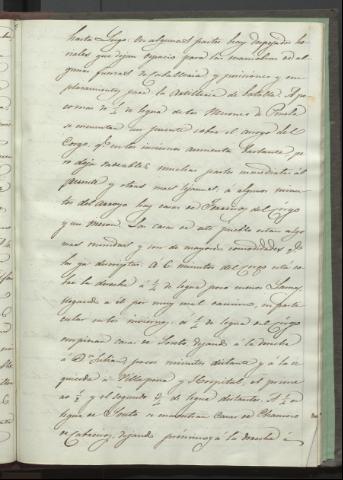 hasta Lugo. En algunas partes hay despejados bo-
nales que dejan espacio para las maniobras de al-
gunas fuerzas de Caballeria y posiciones y em-
plazamientos para la Artilleria de batalla. A po-
co mas de ½ de legua de los Mesones de Puebla
se encuentra un puente sobre el arroyo del
Corgo, qe en los inviernos aumenta bastante, pe-
ro deja vadeable muchas partes inmediatas al
puente y otras mas lejanas, á algunos minu-
tos del arroyo hay casas de Francos del Corgo
y un meson. Las casas de este pueblo estan algo
mas mundas y son de mayores comodidades qe
las ya descriptas. A 6 minutos del Corgo está so-
bre la derecha á ¼ de legua poco menos Lamas
llegando á él por muy mal camino, en parte
estas en los inviernos. á ½ de legua del Corgo
empiezan casas de Souto dejando á la derecha
á Dn Julian pocos minutos distante y á la iz-
quierda á Villapena y Hospital, el prime-
ro ½ y el segundo ¾ de legua distantes. A ½ de
legua de Souto se encuentran Casas de Chamoso
de Cabreiros, dejando proximo á la derecha á